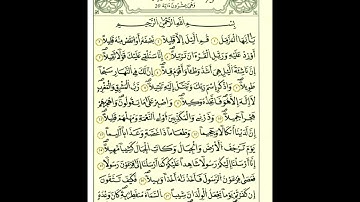 73
وَهِيَ عِشْرُونَ آيَةً 20
بِسْمِ اللَّهِ الرَّحْمَٰنِ الرَّحِيمِ
يَٰٓأَيُّهَا الْمُزَّمِّلُ ١ قُمِ الَّيْلَ إِلَّا قَلِيلًا ٢ نِّصْفَهُۥٓ أَوِ انقُصْ مِنْهُ قَلِيلًا ٣
أَوْ زِدْ عَلَيْهِ وَرَتِّلِ الْقُرْءَانَ تَرْتِيلًا ٤ إِنَّا سَنُلْقِي عَلَيْكَ قَوْلًا ثَقِيلًا ٥
إِنَّ نَاشِئَةَ الَّيْلِ هِيَ أَشَدُّ وَطْـًٔا وَأَقْوَمُ قِيلًا ٦ إِنَّ لَكَ فِي النَّهَارِ سَبْحًا
طَوِيلًا ٧ وَاذْكُرِ اسْمَ رَبِّكَ وَتَبَتَّلْ إِلَيْهِ تَبْتِيلًا ٨ رَّبُّ الْمَشْرِقِ وَالْمَغْرِبِ
لَآ إِلَٰهَ إِلَّا هُوَ فَاتَّخِذْهُ وَكِيلًا ٩ وَاصْبِرْ عَلَىٰ مَا يَقُولُونَ وَاهْجُرْهُمْ
هَجْرًا جَمِيلًا ١٠ وَذَرْنِي وَالْمُكَذِّبِينَ أُولِي النَّعْمَةِ وَمَهِّلْهُمْ قَلِيلًا ١١
إِنَّ لَدَيْنَآ أَنكَالًا وَجَحِيمًا ١٢ وَطَعَامًا ذَا غُصَّةٍ وَعَذَابًا أَلِيمًا ١٣
يَوْمَ تَرْجُفُ الْأَرْضُ وَالْجِبَالُ وَكَانَتِ الْجِبَالُ كَثِيبًا مَّهِيلًا ١٤
إِنَّآ أَرْسَلْنَآ إِلَيْكُمْ رَسُولًا شَاهِدًا عَلَيْكُمْ كَمَآ أَرْسَلْنَآ إِلَىٰ فِرْعَوْنَ رَسُولًا ١٥
فَعَصَىٰ فِرْعَوْنُ الرَّسُولَ فَأَخَذْنَٰهُ أَخْذًا وَبِيلًا ١٦ فَكَيْفَ تَتَّقُونَ
إِن كَفَرْتُمْ يَوْمًا يَجْعَلُ الْوِلْدَٰنَ شِيبًا ١٧ السَّمَآءُ مُنفَطِرٌۢ بِهِۦ كَانَ وَعْدُهُۥ